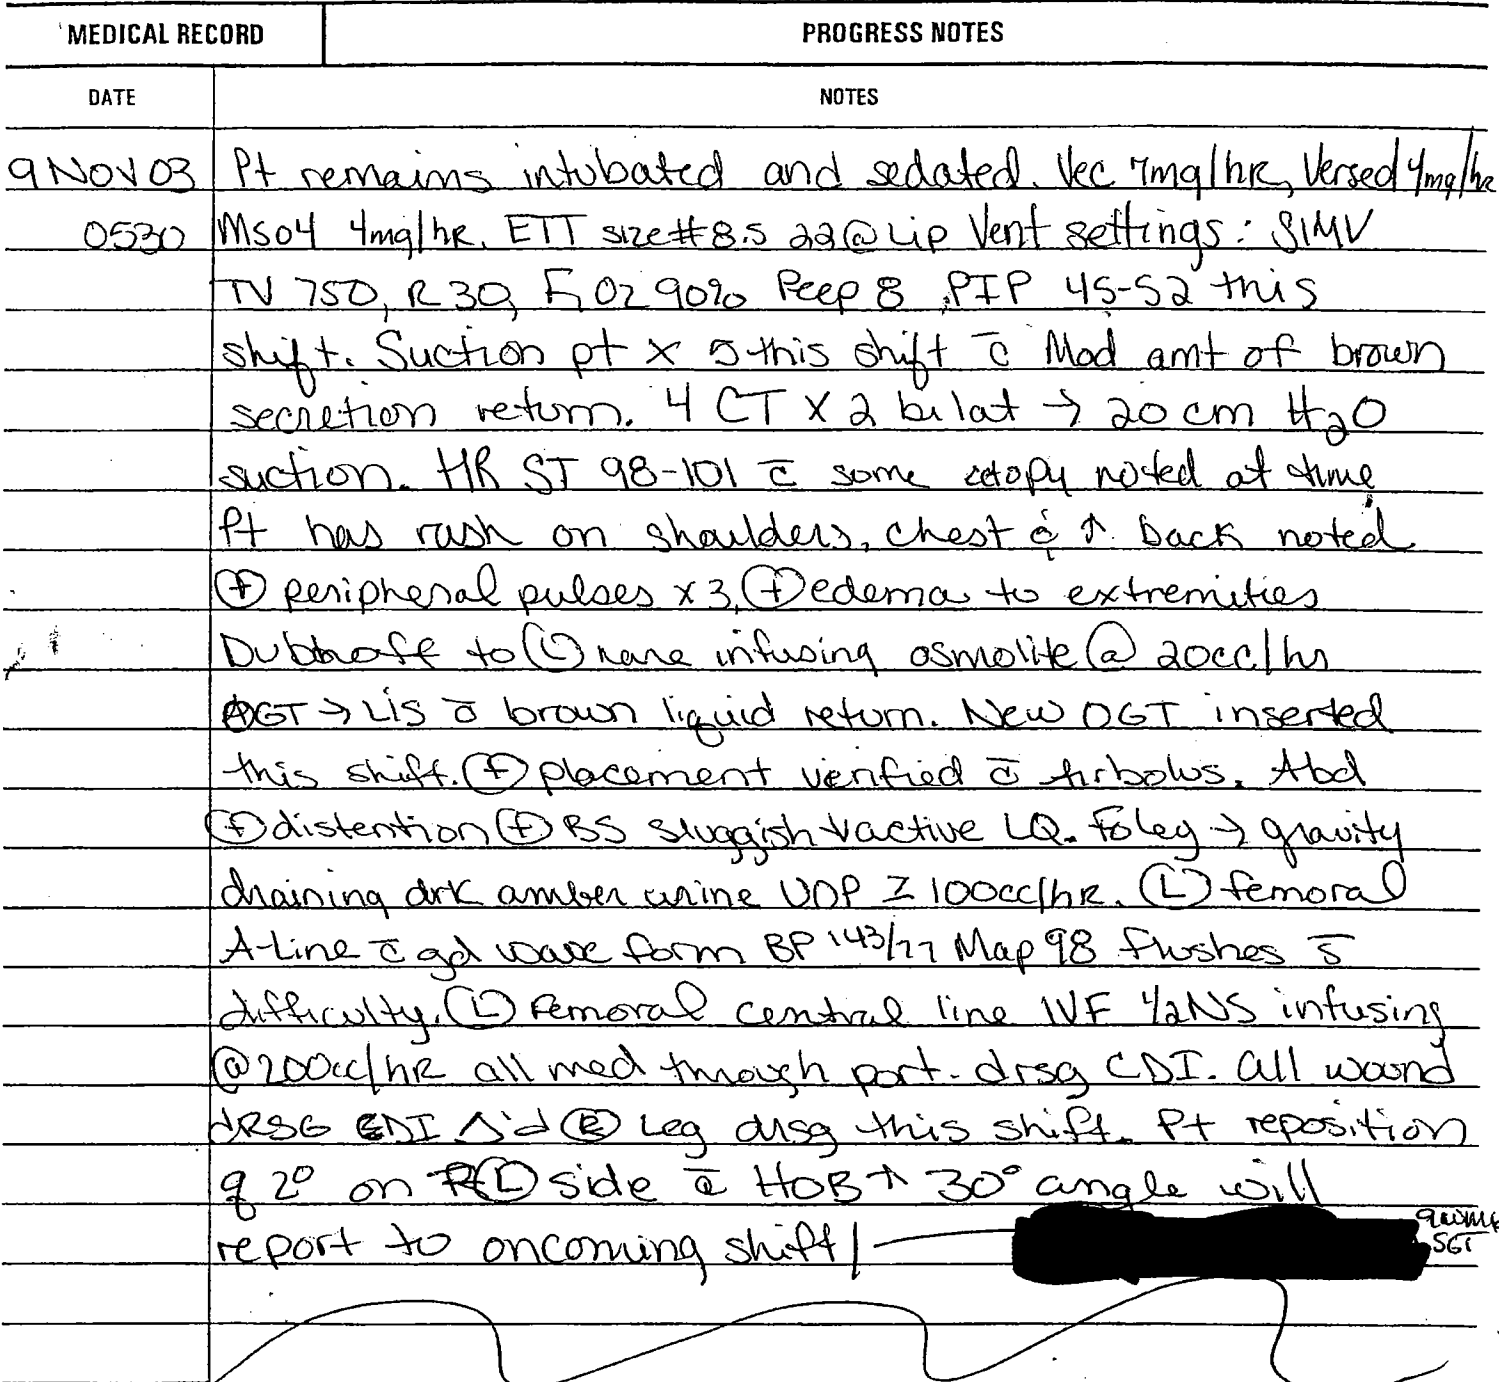 MEDICAL RECORD PROGRESS NOTES
DATE NOTES
9 NOV 03 Pt remains intubated and sedated. Vec 7mg/hr, Versed 4mg/hr
0530 MSO4 4mg/hr. ETT size #8.5 22@Lip Vent settings: SIMV
TV 750, R 30, FiO2 90% Peep 8, PIP 45-52 this
shift. Suction pt x 5 this shift c̄ Mod amt of brown
secretion return. 4 CT X 2 bilat → 20 cm H2O
suction. HR ST 98-101 c̄ some ectopy noted at time
Pt has rash on shoulders, chest & ↑ back noted
⊕ peripheral pulses x 3, ⊕ edema to extremities
Dubbhoff to Ⓛ nare infusing osmolite @ 20cc/hr
OGT → LIS c̄ brown liquid return. New OGT inserted
this shift. ⊕ placement verified c̄ airbolus. Abd
⊕ distention ⊕ BS sluggish active LQ. Foley → gravity
draining drk amber urine UOP ≥ 100cc/hr. Ⓛ femoral
A-Line c̄ gd wave form BP 143/77 Map 98 flushes s̄
difficulty. Ⓛ Femoral central line IVF 1/2NS infusing
@200cc/hr all med through port. drsg CDI. All wound
dRSG CDI Δ'd Ⓡ Leg drsg this shift. Pt reposition
q 2° on Ⓛ side c̄ HOB ↑ 30° angle will
report to oncoming shift/
SGT